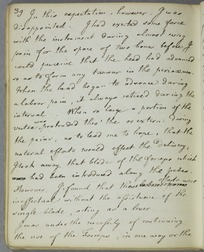 3) In this expectation, however, I was
disappointed. I had exerted some force
with the instrument during almost every
pain for the space of two hours before I
could perceive that the head had advanced
so as to form any tumour in the perineum.
When the head began to advance during
a labour pain, it always retired during the
interval. When so large a portion of the
vertex protruded thro' the os externum during
the pains, as to lead me to hope, that the
natural efforts would effect the delivery,
I took away that blade of the forceps which
had been introduced along the pubes.
However, I found that these
ineffectual without the assistance of the
single blade, acting as a lever.
I was under the necessity of continuing
the use of the Forceps, in one way or the